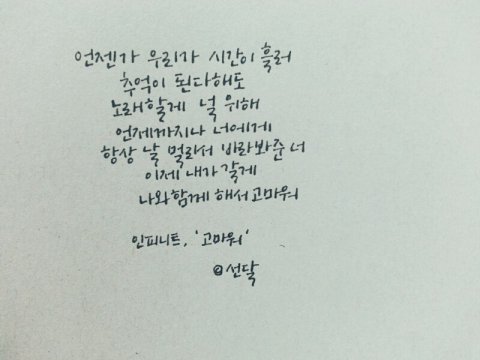 언젠가 우리가 시간이 흘러
추억이 된다해도
노래할게 널 위해
언제까지나 너에게
항상 날 멀리서 바라봐준 너
이제 내가 갈게
나와함께 해서 고마워
인피니트, '고마워'
@선달